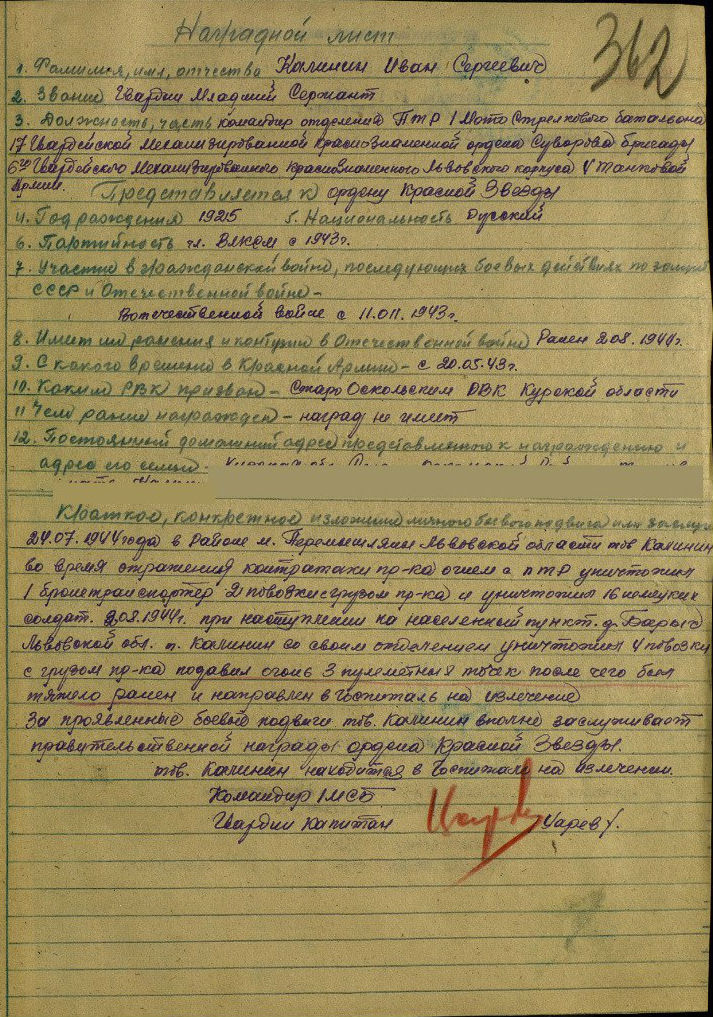 Наградной лист
362
1. Фамилия, имя, отчество Калинин Иван Сергеевич
2. Звание Гвардии Младший Сержант
3. Должность, часть командир отделения ПТР 1 Мото Стрелкового батальона
17 Гвардейской Механизированной Краснознаменной ордена Суворова бригады
6го Гвардейского Механизированного Краснознаменного Львовского корпуса 4 Танковой
Армии.
Представляется к ордену Красной Звезды
4. Год рождения 1925 5. Национальность Русский
6. Партийность чл. ВЛКСМ с 1943г.
7. Участие в гражданской войне, последующих боевых действиях по защите
СССР и Отечественной войне –
В отечественной войне с 11.07.1943г.
8. Имеет ли ранения и контузии в Отечественной войне Ранен 2.08.1944г.
9. С какого времени в Красной Армии – с 20.05.43г.
10. Каким РВК призван – Старо Оскольским РВК Курской области
11 Чем ранее награжден – наград не имеет
12. Постоянный домашний адрес представленного к награждению и
адрес его семьи –
Краткое, конкретное изложение личного боевого подвига или заслуг
24.07.1944 года в Районе м. Перемышляны Львовской области тов Калинин
во время отражения контратаки пр-ка огнем с ПТР уничтожил
1 бронетранспортер 2 повозки с грузом пр-ка и уничтожил 16 немецких
солдат. 2.08.1944г. при наступлении на населенный пункт. д. Барыс
Львовской обл. т. Калинин со своим отделением уничтожил 4 повозки
с грузом пр-ка подавил огонь 3 пулеметных точек после чего был
тяжело ранен и направлен в Госпиталь на излечение
За проявленные боевые подвиги тов. Калинин вполне заслуживает
правительственной награды ордена Красной Звезды.
тов. Калинин находится в Госпитале на излечении.
Командир 1 МСБ
Гвардии Капитан Царев